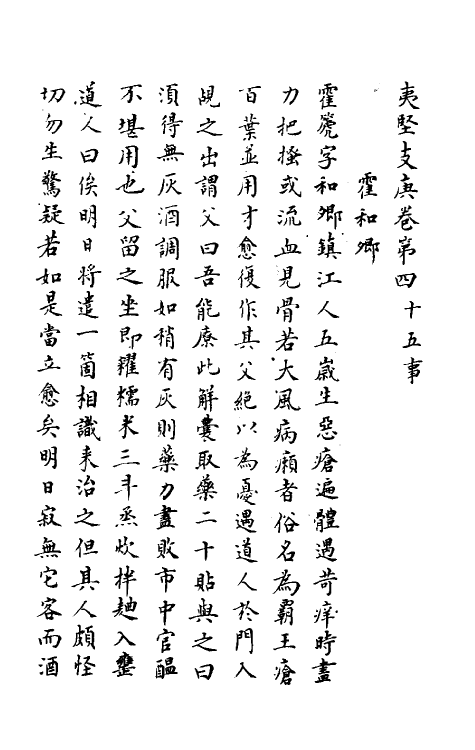 夷堅支庚卷第四十五事
霍和卿
霍篪字和卿鎮江人五歲生惡瘡遍體遇苛痒時盡
力把搔或流血見骨若大風病癩者俗名為霸王瘡
百葉並用才愈復作其父絕以為憂遇道人於門入
覘之出謂父曰吾能療此解囊取藥二十貼與之曰
須得無灰酒調服如稍有灰則藥力盡敗市中官醖
不堪用也父留之坐即糴糯米三斗烝炊拌麯入甕
道人曰俟明日將遣一箇相識来治之但其人頗怪
切勿生驚疑若如是當立愈矣明日寂無它客而酒